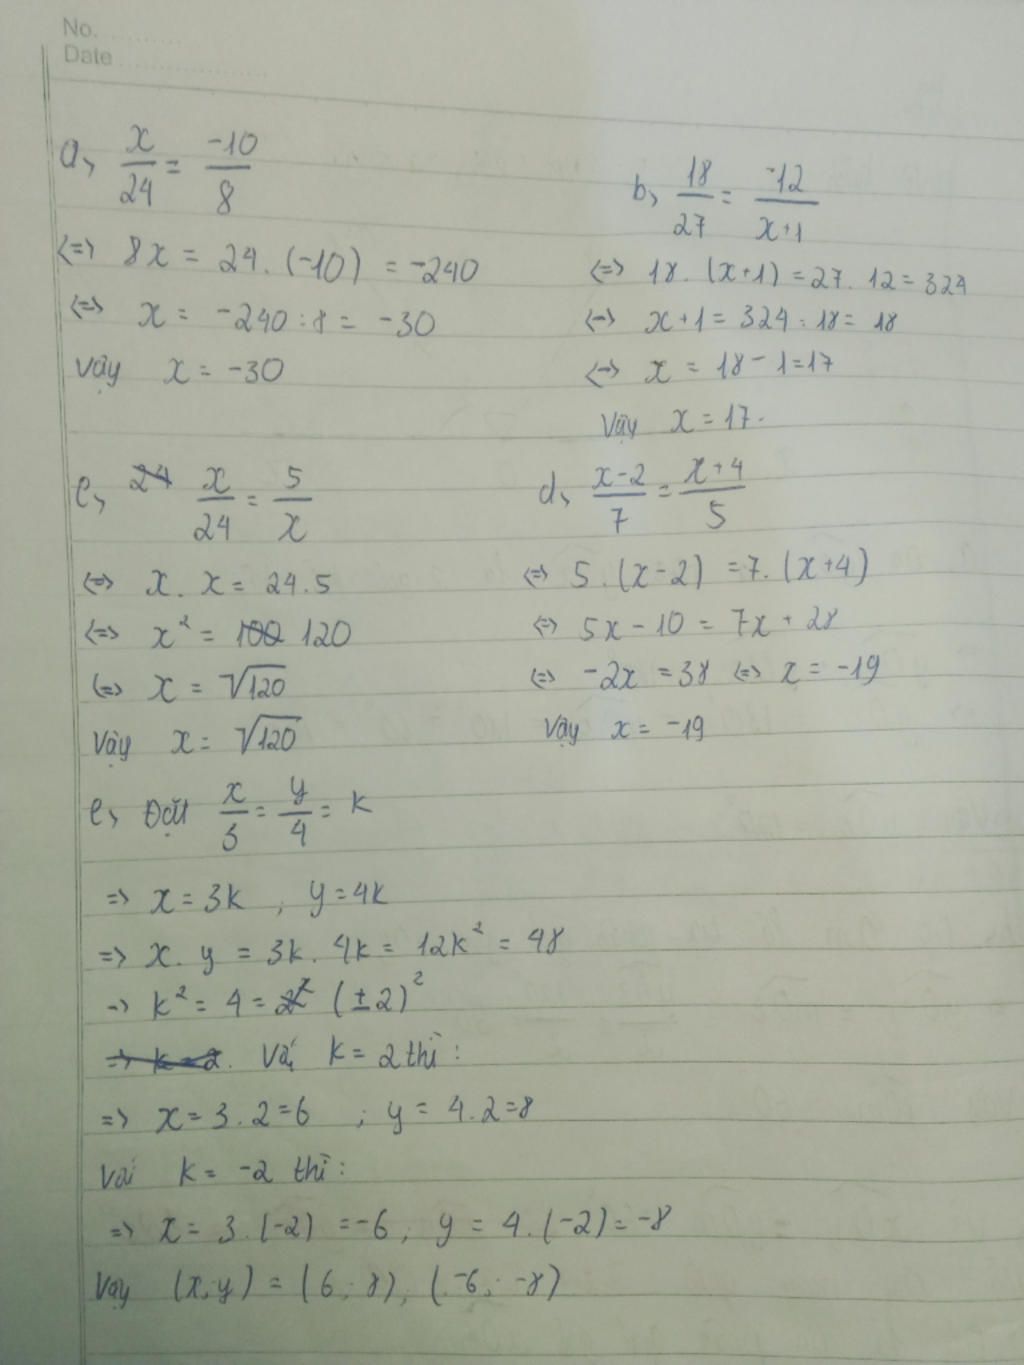 No. ...........
Date .....................
a, x/24 = -10/8
<=> 8x = 24. (-10) = -240
<=> x = -240 : 8 = -30
Vậy x = -30
b, 18/27 = -12/x+1
<=> 18. (x+1) = 27. 12 = 324
<=> x+1 = 324 : 18 = 18
<=> x = 18 - 1 = 17
Vậy x = 17.
c, 24 x/24 = 5/x
<=> x. x = 24.5
<=> x² = 100 120
<=> x = √120
Vậy x = √120
d, x-2/7 = x+4/5
<=> 5. (x-2) = 7. (x+4)
<=> 5x - 10 = 7x + 28
<=> -2x = 38 <=> x = -19
Vậy x = -19
e, Đặt x/3 = y/4 = k
=> x = 3k , y = 4k
=> x. y = 3k. 4k = 12k² = 48
=> k² = 4 = 2² (±2)²
=> k = 2. Với k = 2 thì :
=> x = 3. 2 = 6 ; y = 4. 2 = 8
Với k = -2 thì :
=> x = 3. (-2) = -6 ; y = 4. (-2) = -8
Vậy (x;y) = (6 ; 8), (-6 ; -8)